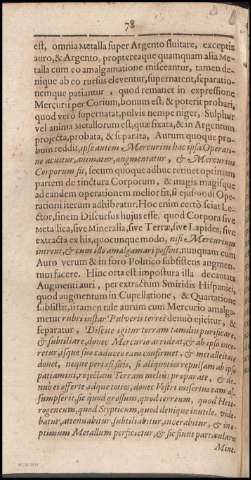 78
est, omnia Metalla super Argento fluitare, exceptis
auro, & Argento, propterea que quamquam alia Me-
talla cum eo amalgamatione misceantur, tamen de-
nique ab eo rursus eleventur, supernatent, separatio-
nemque patiantur, quod remanet in expressione
Mercurii per Corium, bonum est, & poterit probari,
quod verò supernatat, pulvis nempe niger, Sulphur
vel anima Metallorum est, quæ fixata, & in Argentum
projecta, probata, & separata, Aurum quoque pro-
bum reddit, ipse autem Mercurius hac ipsa Operatio-
ne acuitur, animatur, augmentatur, & Mercurius
Corporum fit, secum quoque adhuc retinet optimam
partem de tinctura Corporum, & magis magisque
ad eandem operationem melior fit, si ejusmodi Ope-
rationi iterum adhibeatur. Hoc enim certò sciat Le-
ctor, sinem Discursus hujus esse, quod Corpora sive
Metallica, sive Mineralia, sive Terræ, sive Lapides, sive
extracta ex his, quocunque modo, nisi Mercurium
intrent, & cum illo amalgamari possint, nunquam cum
Auro verum & in foro Politico subsistens augmen-
tum facere. Hinc orta est impostura illa decantata
Augmenti auri, per extractum Smiridis Hispaniæ,
quod augmentum in Cupellatione, & Quartatione
subsistit, si tamen tale aurum cum Mercurio amalga-
metur rubei instar Pulveris terrei denuò dejicitur, &
separatur, Discite igitur terram tamdiu purificare,
& subtiliare, donec Mercurio adhæreat, & ab ipso
retur, ipsque suo cadavere eam confirmet, & metalleitate
donet, neque per eß possit, si aliquoties repulsam ab ipso
patiamini, rejectam Terram melius præparate, & de-
nuò ei offerte idque toties, donec Vestri misertus eam as-
sumpserit, sic quod grossum, quod terreum, quod Hete-
rogeneum, quod Stypticum, quod denique inutile, vide-
batur, attenuabitur, subtiliabitur, arcerabitur, & in
optimum Metallum perficietur, & sic sunt particularia
Mine.